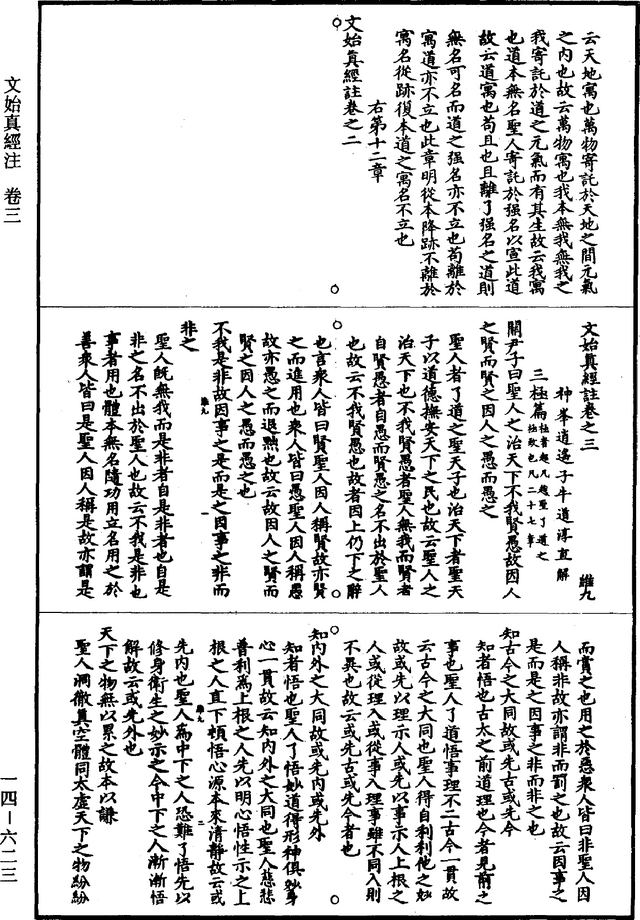 文始真經注　卷三
一四－六二三
云天地寓也萬物寄託於天地之間元氣
之内也故云萬物寓也我本無我無我之
我寄託於道之元氣而有其生故云我寓
也道本無名聖人寄託於强名以宣此道
故云道寓也苟且也且離了强名之道則
無名可名而道之强名亦不立也苟離於
寓道亦不立也此章明從本降跡不離於
寓名從跡復本道之寓名不立也
右第十二章
文始真經註卷之二
文始真經註卷之三
維九
神峯逍遥子牛道淳直解
三極篇極者超凡越聖了道之極致也凡二十七章
關尹子曰聖人之治天下不我賢愚故因人
之賢而賢之因人之愚而愚之
聖人者了道之聖天子也治天下者聖天
子以道德撫安天下之民也故云聖人之
治天下也不我賢愚者聖人無我而賢者
自賢愚者自愚而賢愚之名不出於聖人
也故云不我賢愚也故者因上仍下之辭
也言衆人皆曰賢聖人因人稱賢故亦賢
之而進用也衆人皆曰愚聖人因人稱愚
故亦愚之而退黜也故云故因人之賢而
賢之因人之愚而愚之也
不我是非故因事之是而是之因事之非而
非之
聖人既無我而是非者自是非者也自是
非之名不出於聖人也故云不我是非也
事者用也體本無名隨功用立名用之於
善衆人皆曰是聖人因人稱是故亦謂是
而賞之也用之於惡衆人皆曰非聖人因
人稱非故亦謂非而罰之也故云因事之
是而是之因事之非而非之也
知古今之大同故或先古或先今
知者悟也古太之前道理也今者見前之
事也聖人了道悟事理不二古今一貫故
云古今之大同也聖人得自利利他之妙
故或先以理示人或先以事示人上根之
人或從理入或從事入理事雖不同入則
不異也故云或先古或先今者也
知内外之大同故或先内或先外
知者悟也聖人了悟妙道得形神俱妙身
心一貫故云知内外之大同也聖人慈悲
普利爲上根之人先以明心悟性示之上
根之人直下頓悟心源本來清靜故云或
先内也聖人爲中下之人恐難了悟先以
修身衛生之妙示之令中下之人漸漸悟
解故云或先外也
天下之物無以累之故本以謙
聖人洞徹真空體同太虛天下之物紛紛